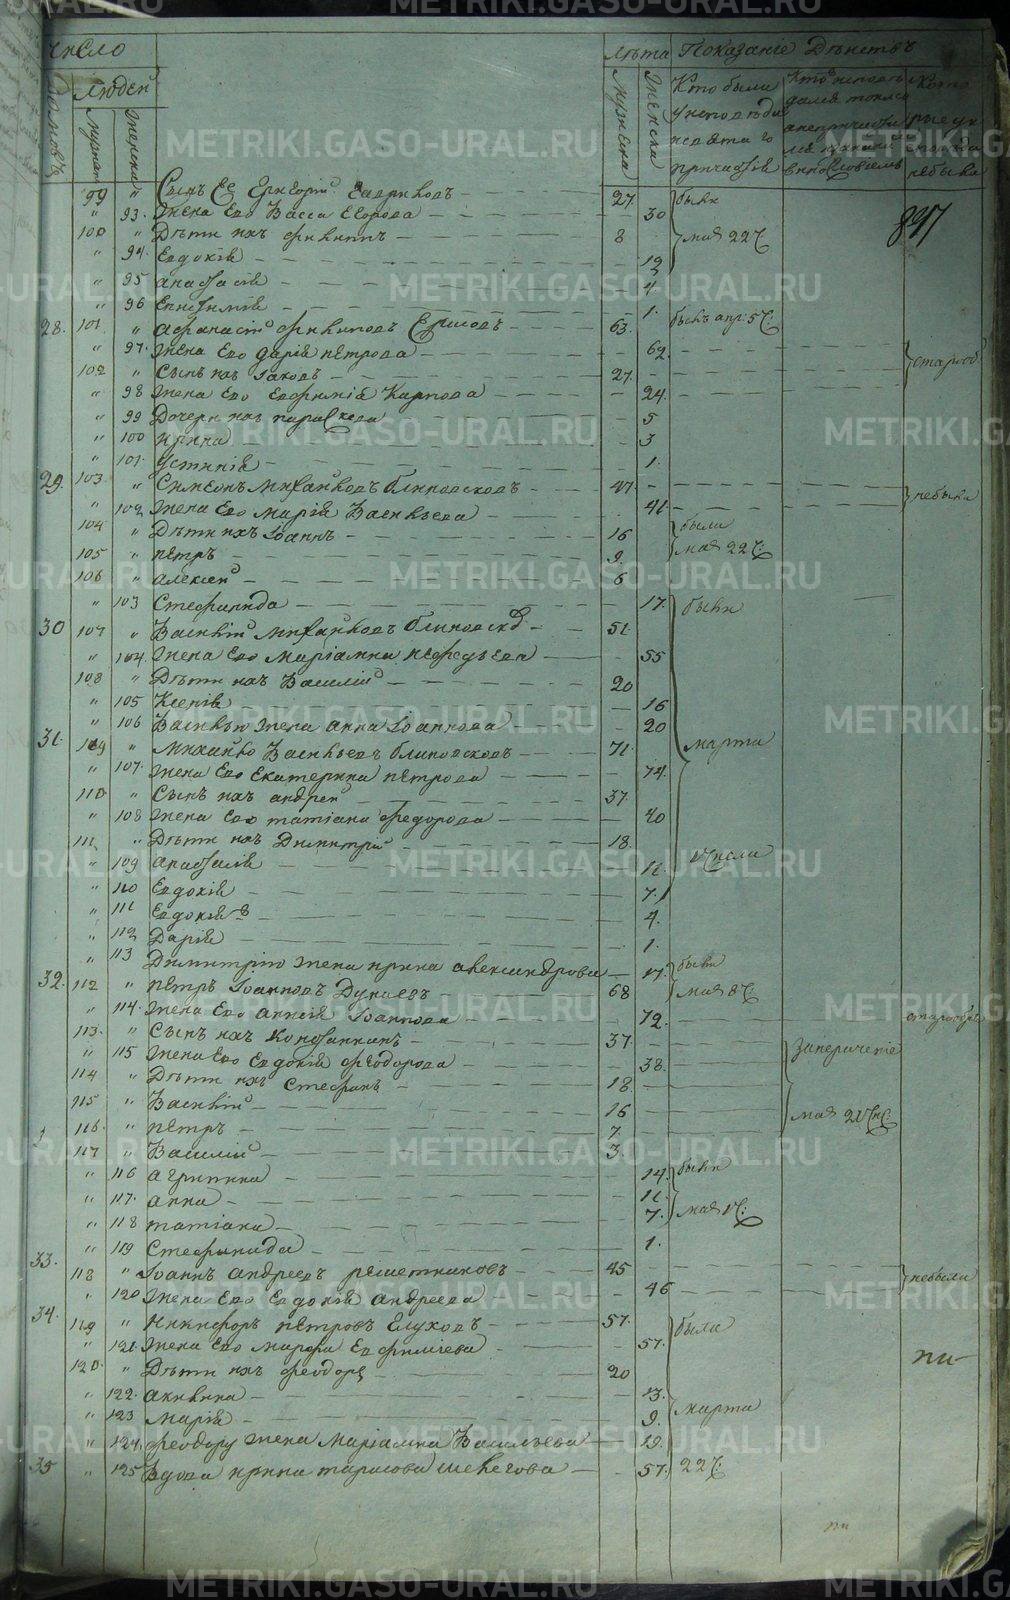 Число
Лѣта Показаніе Дѣйствъ
Домовъ
Людей
Мужеска
Женска
Мужеска
Женска
Кто были
у исповѣди
и святаго
причастія
99 " Сынъ Ее Григорій 27. были
" 93. жена Его Васса Егорова 30
100 " Дѣти ихъ Филиппъ 8 мая 22 ч. 897
" 94. Евдокія 12
" 95 анастасія 4
" 96 1.
28. 101. " афанасій Филиповъ 63. былъ апр: 5 ч.
" 97. жена Его дарія петрова 62. старооб
102 " Сынъ ихъ Іаковъ 27.
" 98 жена Его Евфимія Карпова 24.
" 99 Дочери ихъ параскева 5
" 100 ирина 3
" 101. Устинія 1.
29. 103. " Симеонъ Михайловъ 47. небыли
" 102 жена Его Марія Васильева 41
104 " Дѣти ихъ Іоаннъ 16 были
105 " петръ 9. мая 22 ч.
106 " алексей 6
" 103 Стефанида 17. были
30 107 " Василій Михайловъ 51
" 104 жена Его Маріамна Нефедьева 55
108 " Дѣти ихъ Василій 20
" 105 Ксенія 16
" 106 Василью жена анна Іоаннова 20
31. 109 " Михайло Васильевъ 71. марта
" 107. жена Его Екатерина петрова 74.
110 " Сынъ ихъ андрей 37.
" 108 жена Его татіана Федорова 40
111 " Дѣти ихъ Димитрій 18.
" 109 анастасія 12. числа
" 110 Евдокія 7.
" 111 Евдокія 4.
" 112 Дарія 1.
" 113 Димитрію жена ирина александрова 17. были
32. 112 " петръ Іоанновъ Дунаевъ 68 мая 8 ч.
" 114. жена Его Іоаннова 72. старообр:
113. " Сынъ ихъ Константинъ 37.
" 115 жена Его Евдокія Феодорова 38. за
114 " Дѣти ихъ Стефанъ 18
115 " Василій 16 мая
116. " петръ 7.
117 " Василій 3.
" 116 агрипина 14. были
" 117. анна 11.
" 118 татіана 7. мая
" 119 Стефанида 1.
33. 118 " Іоаннъ андреевъ решетниковъ 45 небыли
" 120 жена Его Евдокія андреева 46
34. 119 " Никифоръ петровъ 57. были
" 121. жена Его марфа Евфимиева 57.
120 " Дѣти ихъ феодоръ 20
" 122. акилина 13.
" 123 марія 9. марта
" 124. феодору жена Маріамна Васильева 19.
35 " 125 Вдова ирина тарасова 57. 22 ч:
METRIKI.GASO-URAL.RU